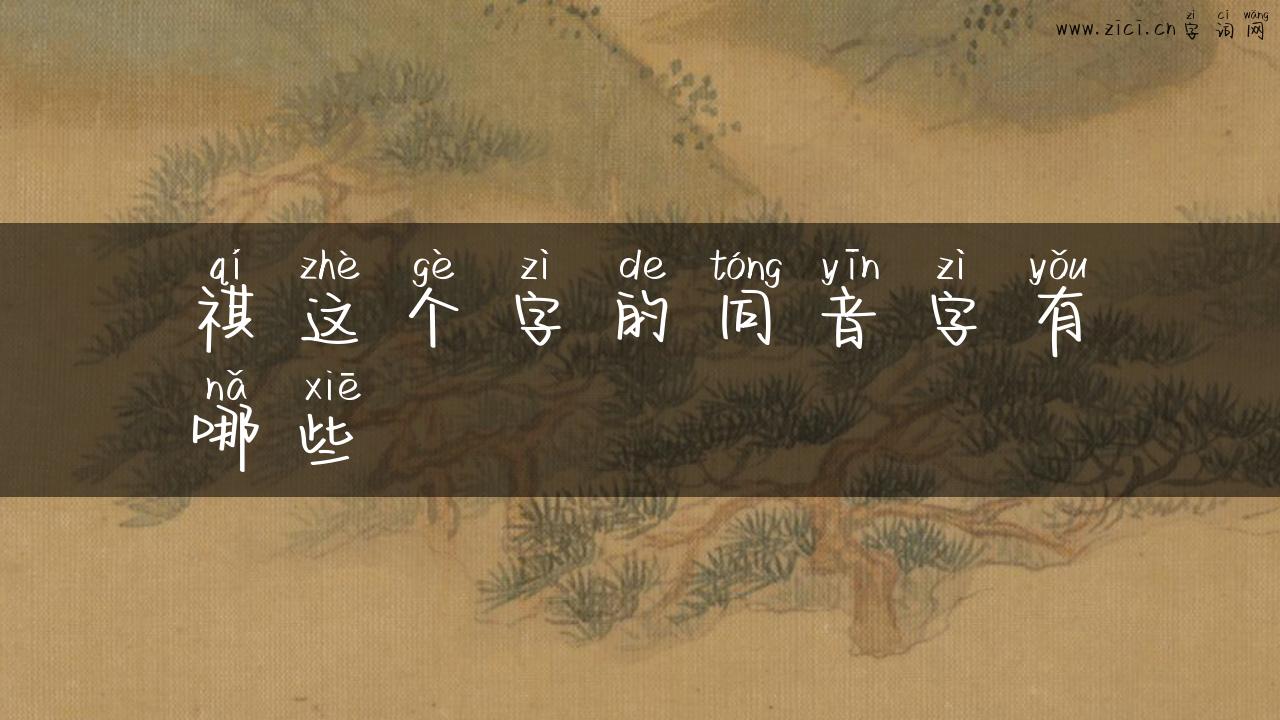 zì cí wǎng
www.zici.cn 字 词 网
qí zhè gè zì de tóng yīn zì yǒu
祺 这 个 字 的 同 音 字 有
nǎ xiē
哪 些